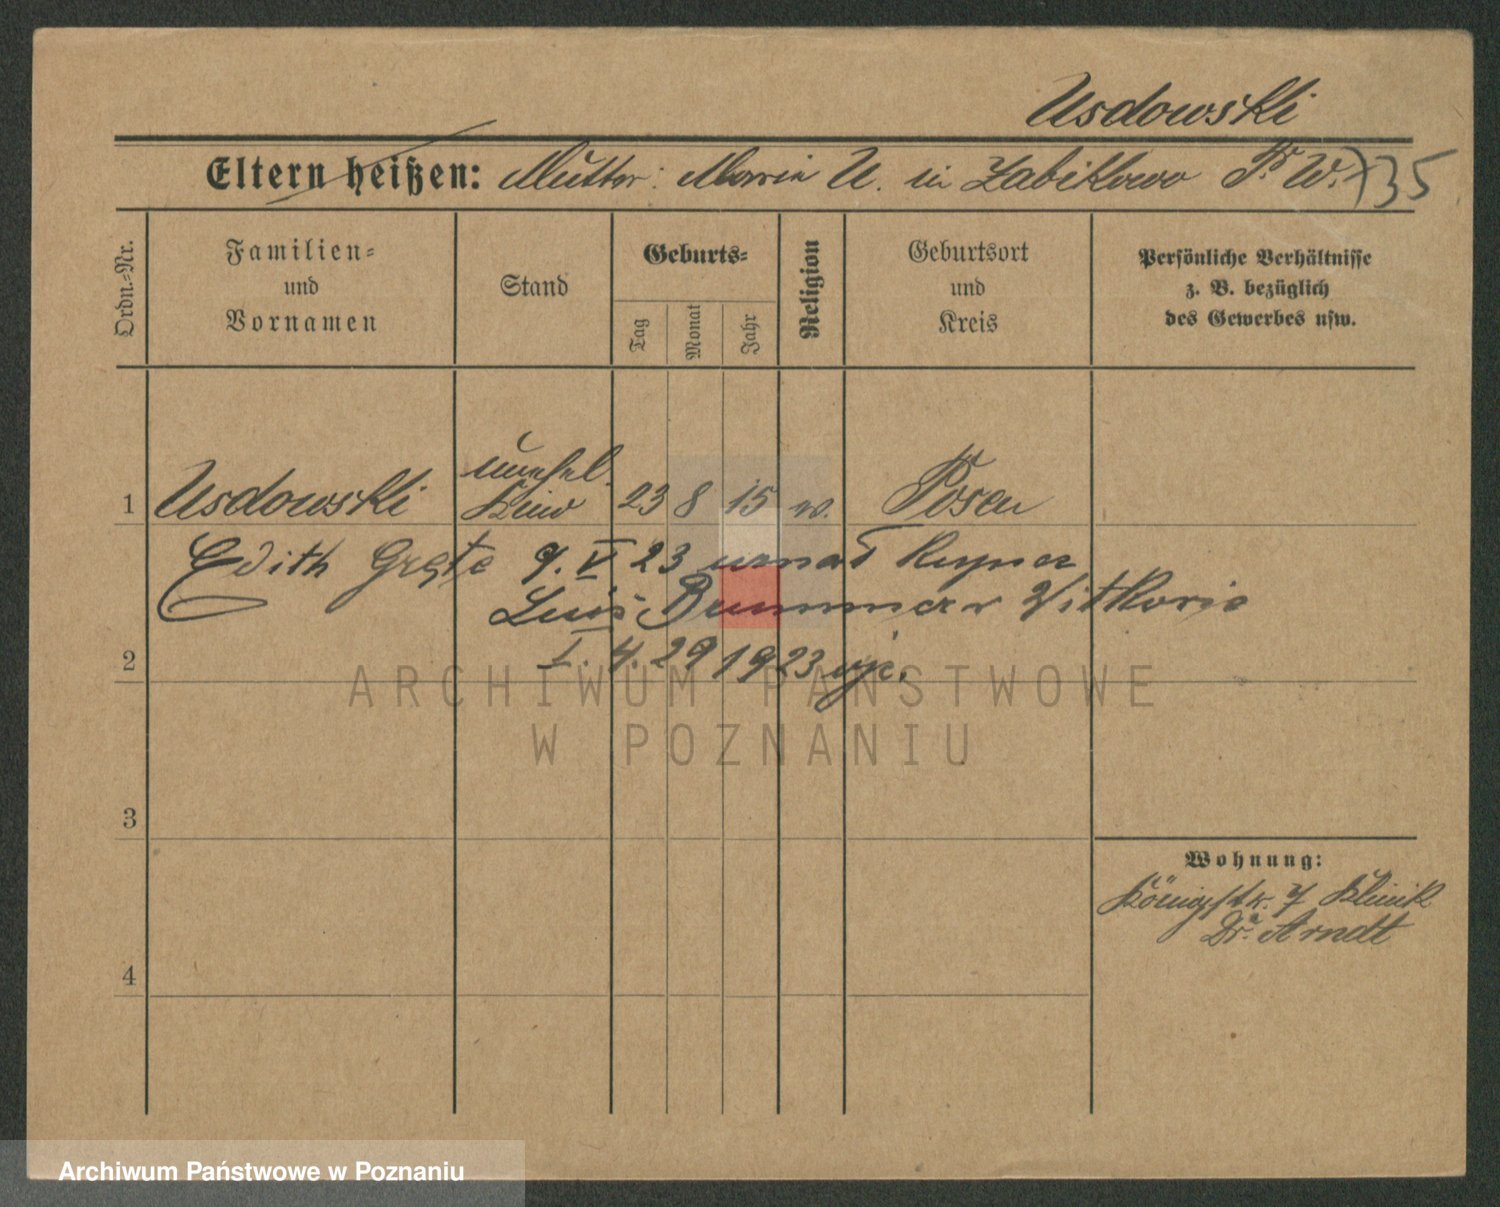 Usdowski
Eltern heißen: Mutter: Maria U. in Zabikowo P. W. 35
Ordn.=Nr.
Familien= und Vornamen
Stand
Geburts=
Tag
Monat
Jahr
Religion
Geburtsort und Kreis
Persönliche Verhältnisse
z. B. bezüglich
des Gewerbes usw.
unehel.
1 Usdowski Kind 23 8 15 Posen
Edith Grete 9. V 23
2 I. 4. 29 1923
ARCHIWUM PAŃSTWOWE
W POZNANIU
3
Wohnung:
Königstr. 7 Klinik
Dr. Arndt
4
Archiwum Państwowe w Poznaniu